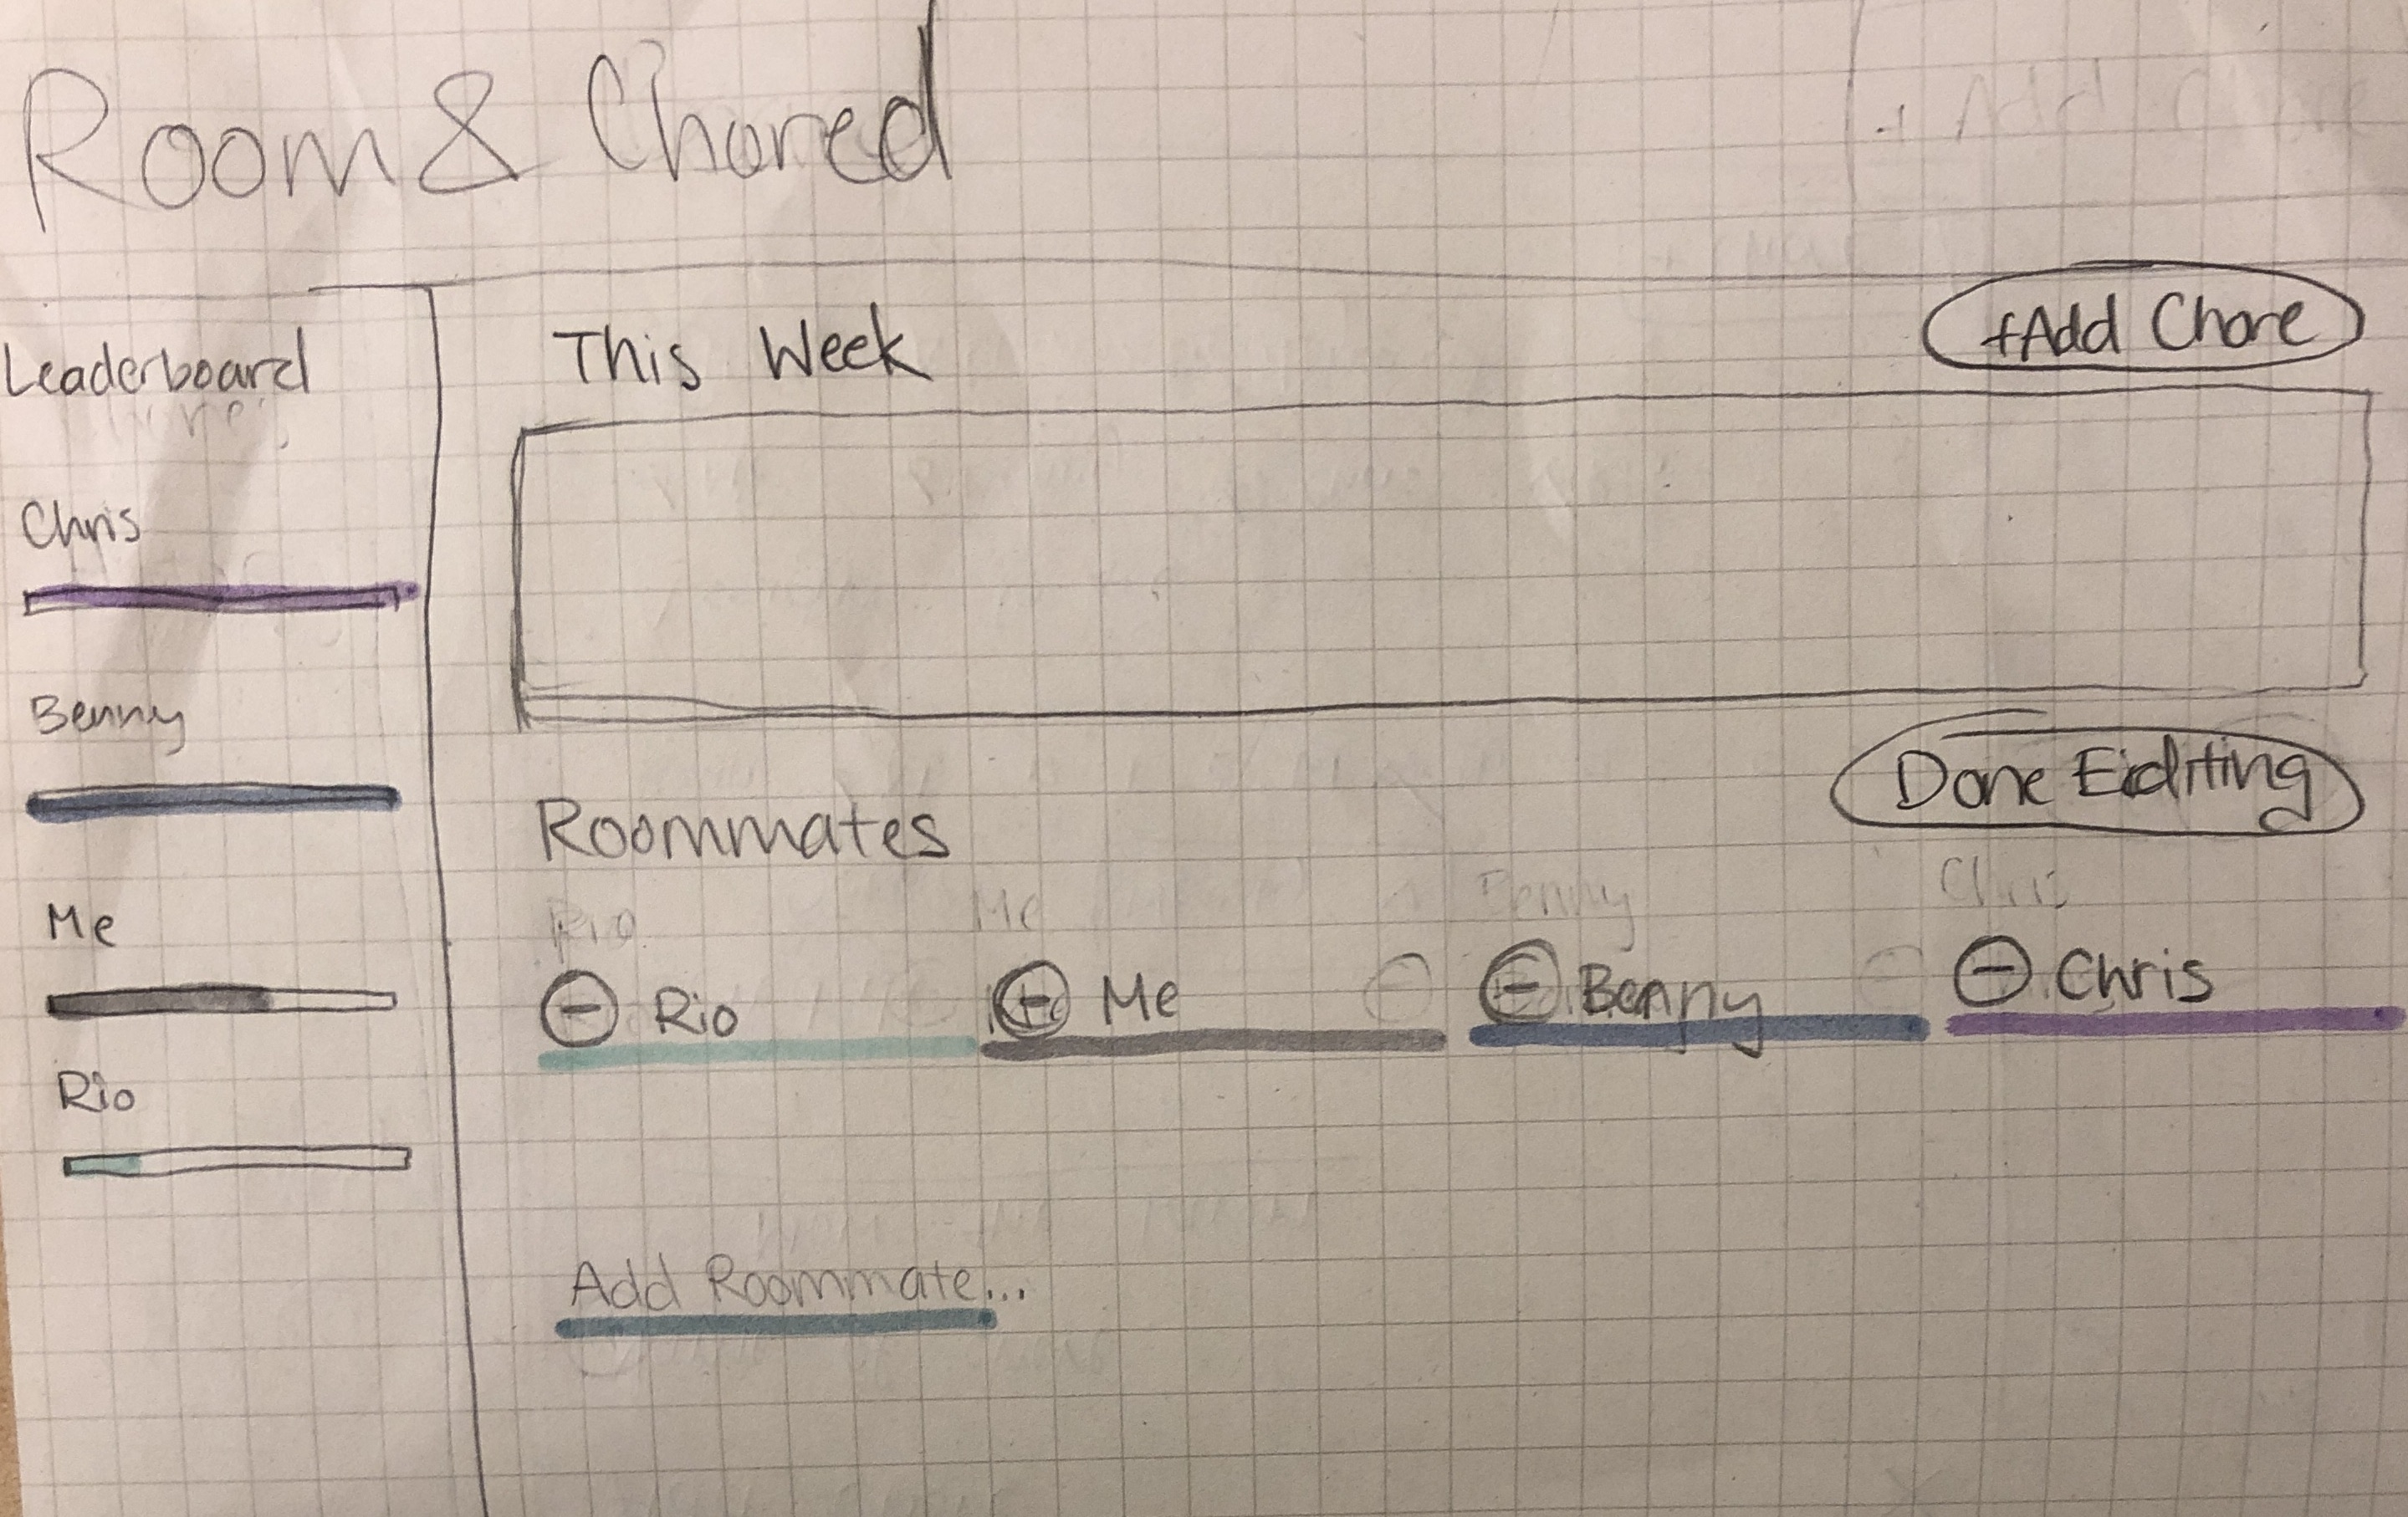 Room & Chored
Leaderboard
Chris
Benny
Me
Rio
This Week
+Add Chore
Roommates
Done Eiditing
Rio
Me
Benny
Chris
- Rio
- Me
- Benny
- Chris
Add Roommate...